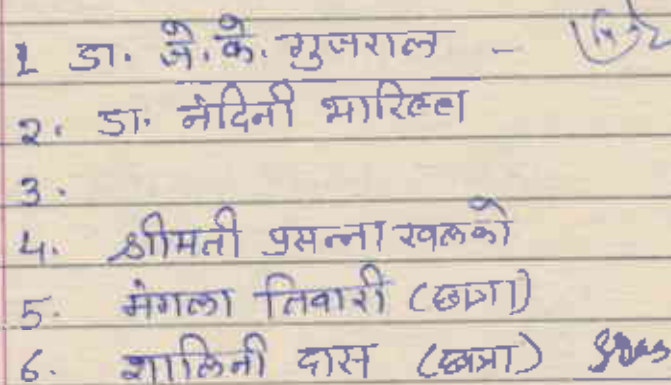 1 डा. जे.के. गुजराल -
2. डा. नंदिनी भारिल्ल
3.
4. श्रीमती प्रसन्ना खलको
5. मंगला तिवारी (छात्रा)
6. शालिनी दास (छात्रा)